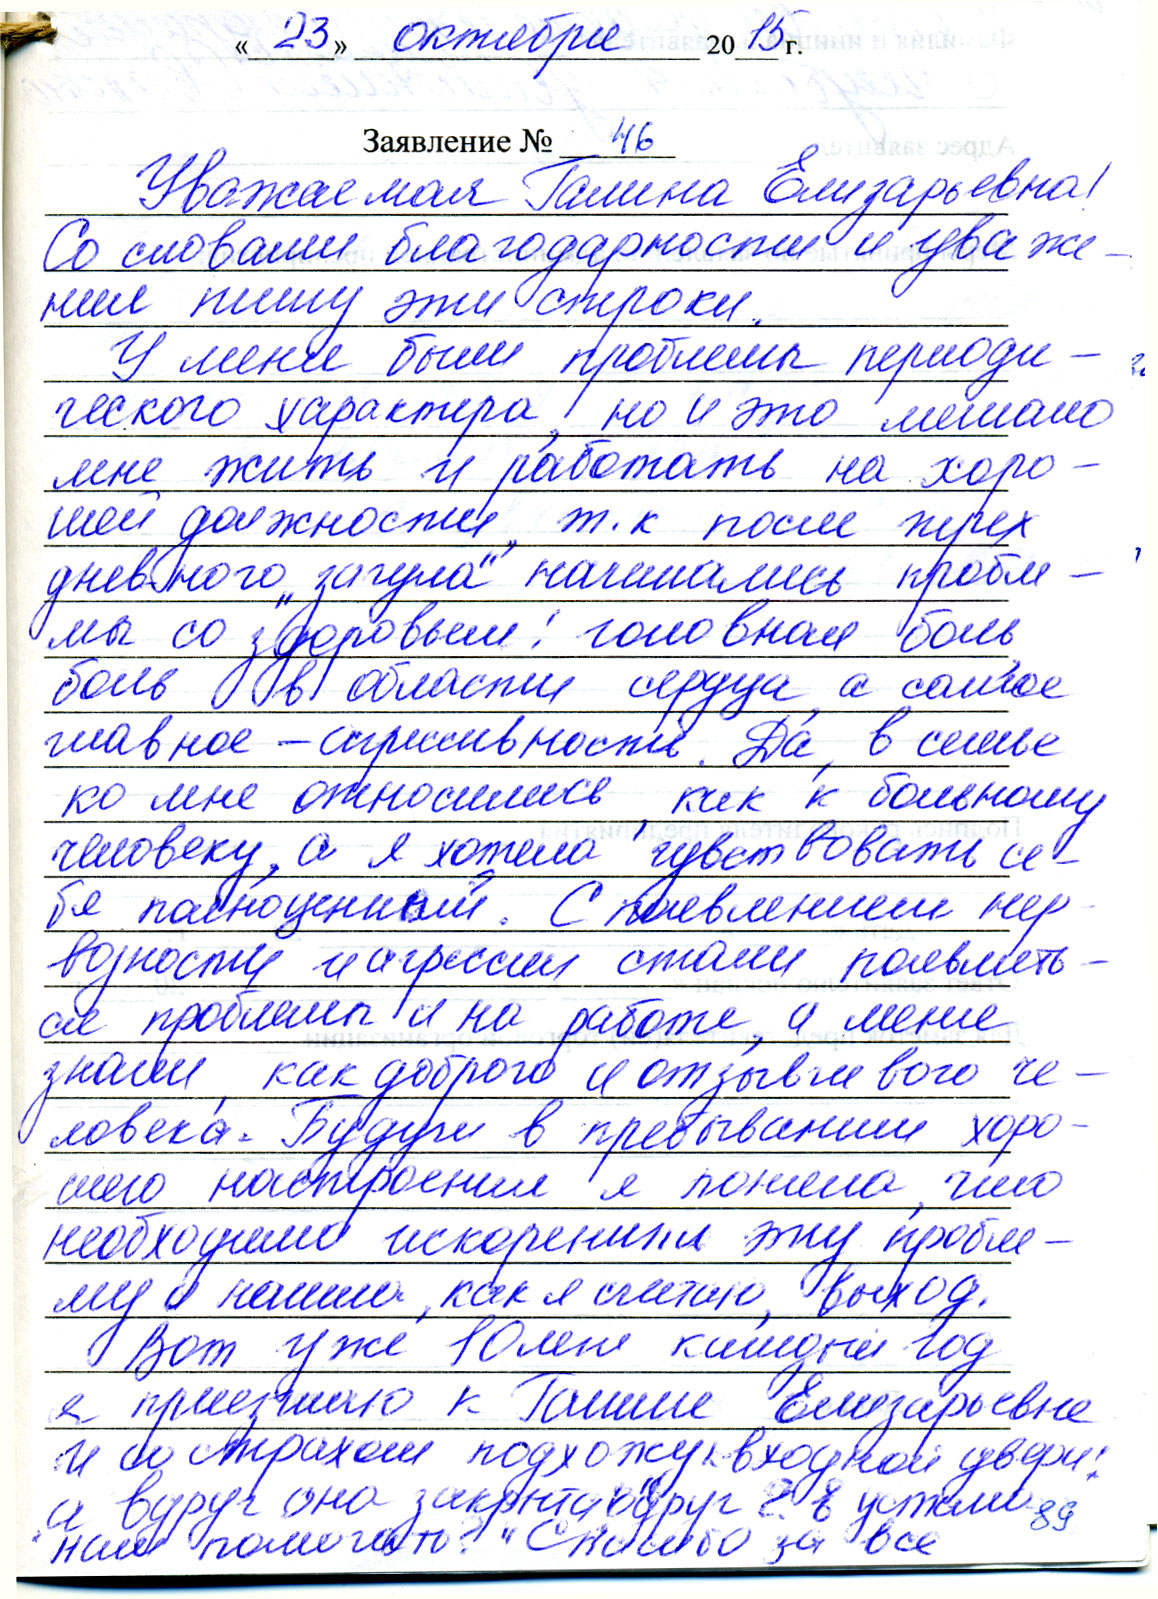 « 23 » октября 20 15 г.
Заявление № 46
Уважаемая Галина Елизарьевна!
Со словами благодарности и уваже-
ния пишу эти строки.
У меня были проблемы периоди-
ческого характера, но и это мешало
мне жить и работать на хоро-
шей должности, т.к после трех
дневного „загула“ начинались пробле-
мы со здоровьем: головная боль,
боль в области сердца, а самое
главное – агрессивность. Да, в семье
ко мне относились как к больному
человеку, а я хотела чувствовать се-
бя полноценной. С появлением нер-
возности и агрессии стали появлять-
ся проблемы и на работе, а меня
знали, как доброго и отзывчивого че-
ловека. Будучи в пребывании хоро-
шего настроения я поняла, что
необходимо искоренить эту пробле-
му и нашла, как я считаю, выход.
Вот уже 10 лет каждый год
я приезжаю к Галине Елизарьевне
и со страхом подхожу к входной двери:
а вдруг она закрыта, вдруг устала
нам помогать? "Спасибо за все
89